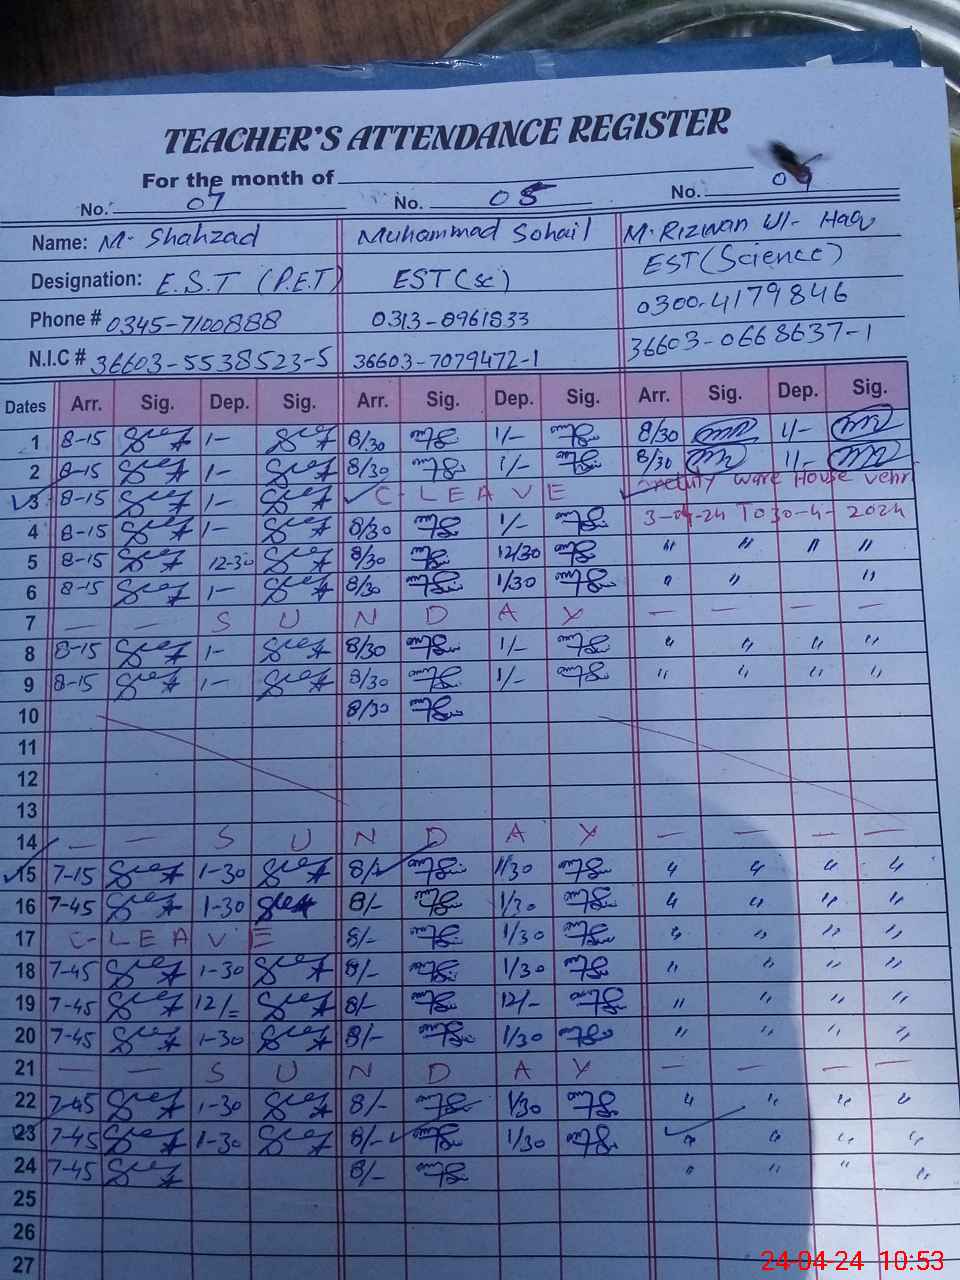 TEACHER'S ATTENDANCE REGISTER
For the month of
No. 07 No. 05 No. 09
Name: M. Shahzad Muhammad Sohail M. Rizwan Ul- Haq
Designation: E.S.T (P.E.T) EST (sc) EST (Science)
Phone # 0345-7100888 0313-8961833 0300-4179846
N.I.C # 36603-5538523-5 36603-7079472-1 36603-0668637-1
Dates Arr. Sig. Dep. Sig. Arr. Sig. Dep. Sig. Arr. Sig. Dep. Sig.
1 8-15 1- 8/30 1/- 8/30 1/-
2 8-15 1- 8/30 1/- 8/30 1/-
3 8-15 1- C-LEAVE ware House
4 8-15 1- 8/30 1/- 3-04-24 To 30-4-2024
5 8-15 12-30 8/30 12/30 " " " "
6 8-15 1- 8/30 1/30 " " "
7 — — S U N D A Y — — — —
8 8-15 1- 8/30 1/- " " " "
9 8-15 1- 8/30 1/- " " " "
10 8/30
11
12
13
14 — — S U N D A Y — — — —
15 7-15 1-30 8/- 1/30 " " " "
16 7-45 1-30 8/- 1/30 " " " "
17 C-LEAVE 8/- 1/30 " " " "
18 7-45 1-30 8/- 1/30 " " " "
19 7-45 12/= 8/- 12/- " " " "
20 7-45 1-30 8/- 1/30 " " " "
21 — — S U N D A Y — — — —
22 7-45 1-30 8/- 1/30 " " " "
23 7-45 1-30 8/- 1/30 " " " "
24 7-45 8/- " " " "
25
26
27
24-04-24 10:53